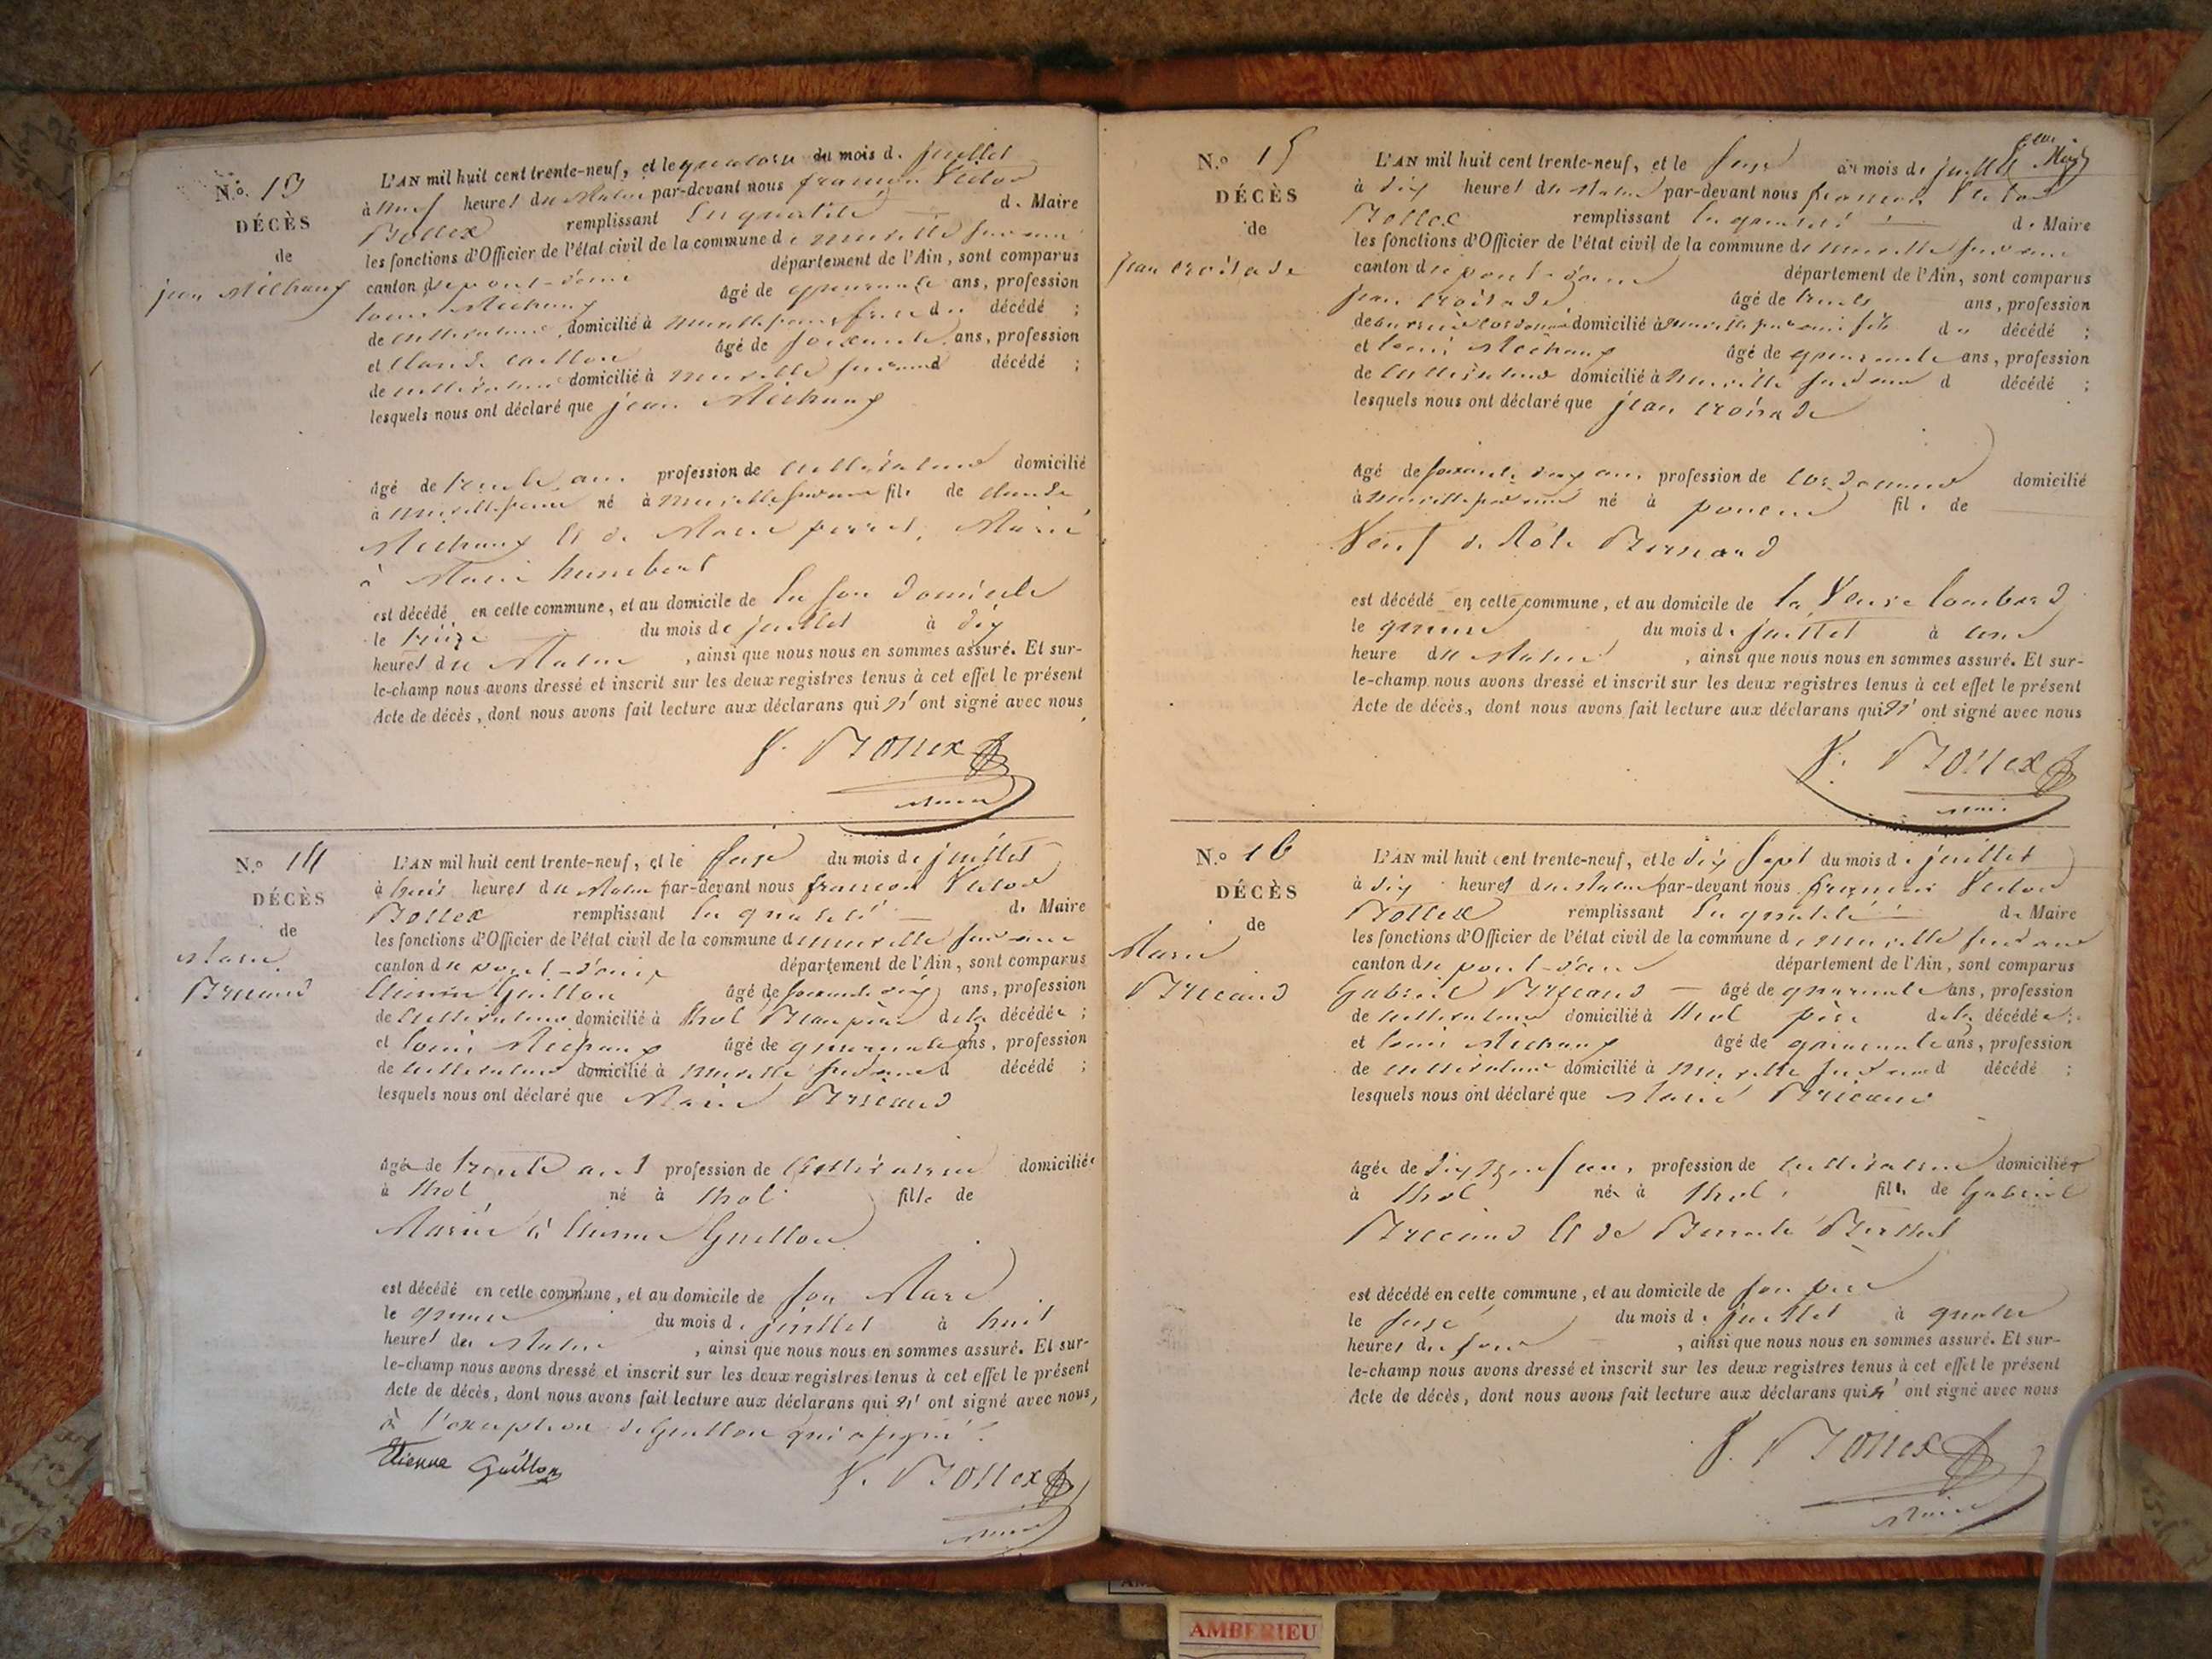 N.o 13
DÉCÈS
de
jean Michaux
L'AN mil huit cent trente-neuf, et le quatorze du mois de juillet
à neuf heures du Matin par-devant nous françois Victor
Bollex remplissant en qualité de Maire
les fonctions d'Officier de l'état civil de la commune de neuville sur ain
canton de pont-d'ain département de l'Ain, sont comparus
Louis Michaux âgé de quarante ans, profession
de cultivateur domicilié à neuville frère du décédé ;
et Claude âgé de soixante ans, profession
de cultivateur domicilié à neuville sur ain d décédé ;
lesquels nous ont déclaré que jean Michaux
âgé de trente ans profession de cultivateur domicilié
à neuville né à neuville sur ain fils de claude
Michaux et de Marie perret, Marié
à Marie humbert
est décédé en cette commune, et au domicile de en son domicile
le treize du mois de juillet à dix
heures du Matin, ainsi que nous nous en sommes assuré. Et sur-
le-champ nous avons dressé et inscrit sur les deux registres tenus à cet effet le présent
Acte de décès, dont nous avons fait lecture aux déclarans qui n'ont signé avec nous
V. Bollex
maire
N.o 14
DÉCÈS
de
Marie
Bricaud
L'AN mil huit cent trente-neuf, et le seize du mois de juillet
à heures du Matin par-devant nous françois Victor
Bollex remplissant en qualité de Maire
les fonctions d'Officier de l'état civil de la commune de neuville sur ain
canton de pont-d'ain département de l'Ain, sont comparus
Etienne Guillon âgé de soixante dix ans, profession
de cultivateur domicilié à thol Beau père de la décédée ;
et Louis Michaux âgé de quarante ans, profession
de cultivateur domicilié à neuville sur ain d décédé ;
lesquels nous ont déclaré que Marie Bricaud
âgée de trente ans profession de cultivatrice domiciliée
à thol né à thol fille de
Mariée à Etienne Guillon
est décédé en cette commune, et au domicile de son Mari
le quinze du mois de juillet à huit
heures du Matin, ainsi que nous nous en sommes assuré. Et sur-
le-champ nous avons dressé et inscrit sur les deux registres tenus à cet effet le présent
Acte de décès, dont nous avons fait lecture aux déclarans qui n'ont signé avec nous,
à l'exception de Guillon qui a signé
Etienne Guillon
V. Bollex
maire
N.o 15
DÉCÈS
de
jean croisade
L'AN mil huit cent trente-neuf, et le seize du mois de juillet
à dix heures du Matin par-devant nous françois Victor
Bollex remplissant en qualité de Maire
les fonctions d'Officier de l'état civil de la commune de neuville sur ain
canton de pont-d'ain département de l'Ain, sont comparus
jean croisade âgé de trente ans, profession
de domicilié à neuville sur ain fils du décédé ;
et Louis Michaux âgé de quarante ans, profession
de cultivateur domicilié à neuville sur ain d décédé ;
lesquels nous ont déclaré que jean croisade
âgé de soixante dix ans profession de cordonnier domicilié
à neuville sur ain né à poncin fils de
Veuf de Bernard
est décédé en cette commune, et au domicile de la Veuve Lombard
le quinze du mois de juillet à une
heure du Matin, ainsi que nous nous en sommes assuré. Et sur-
le-champ nous avons dressé et inscrit sur les deux registres tenus à cet effet le présent
Acte de décès, dont nous avons fait lecture aux déclarans qui n'ont signé avec nous
V. Bollex
maire
N.o 16
DÉCÈS
de
Marie
Bricaud
L'AN mil huit cent trente-neuf, et le dix sept du mois de juillet
à dix heures du Matin par-devant nous françois Victor
Bollex remplissant en qualité de Maire
les fonctions d'Officier de l'état civil de la commune de neuville sur ain
canton de pont-d'ain département de l'Ain, sont comparus
Gabriel Bricaud âgé de quarante ans, profession
de cultivateur domicilié à thol père de la décédée ;
et Louis Michaux âgé de quarante ans, profession
de cultivateur domicilié à neuville sur ain d décédé ;
lesquels nous ont déclaré que Marie Bricaud
âgée de dix neuf ans profession de cultivatrice domiciliée
à thol née à thol fille de Gabriel
Bricaud et de Benoite
est décédé en cette commune, et au domicile de son père
le seize du mois de juillet à quatre
heures du soir, ainsi que nous nous en sommes assuré. Et sur-
le-champ nous avons dressé et inscrit sur les deux registres tenus à cet effet le présent
Acte de décès, dont nous avons fait lecture aux déclarans qui n'ont signé avec nous
V. Bollex
maire
AMBERIEU